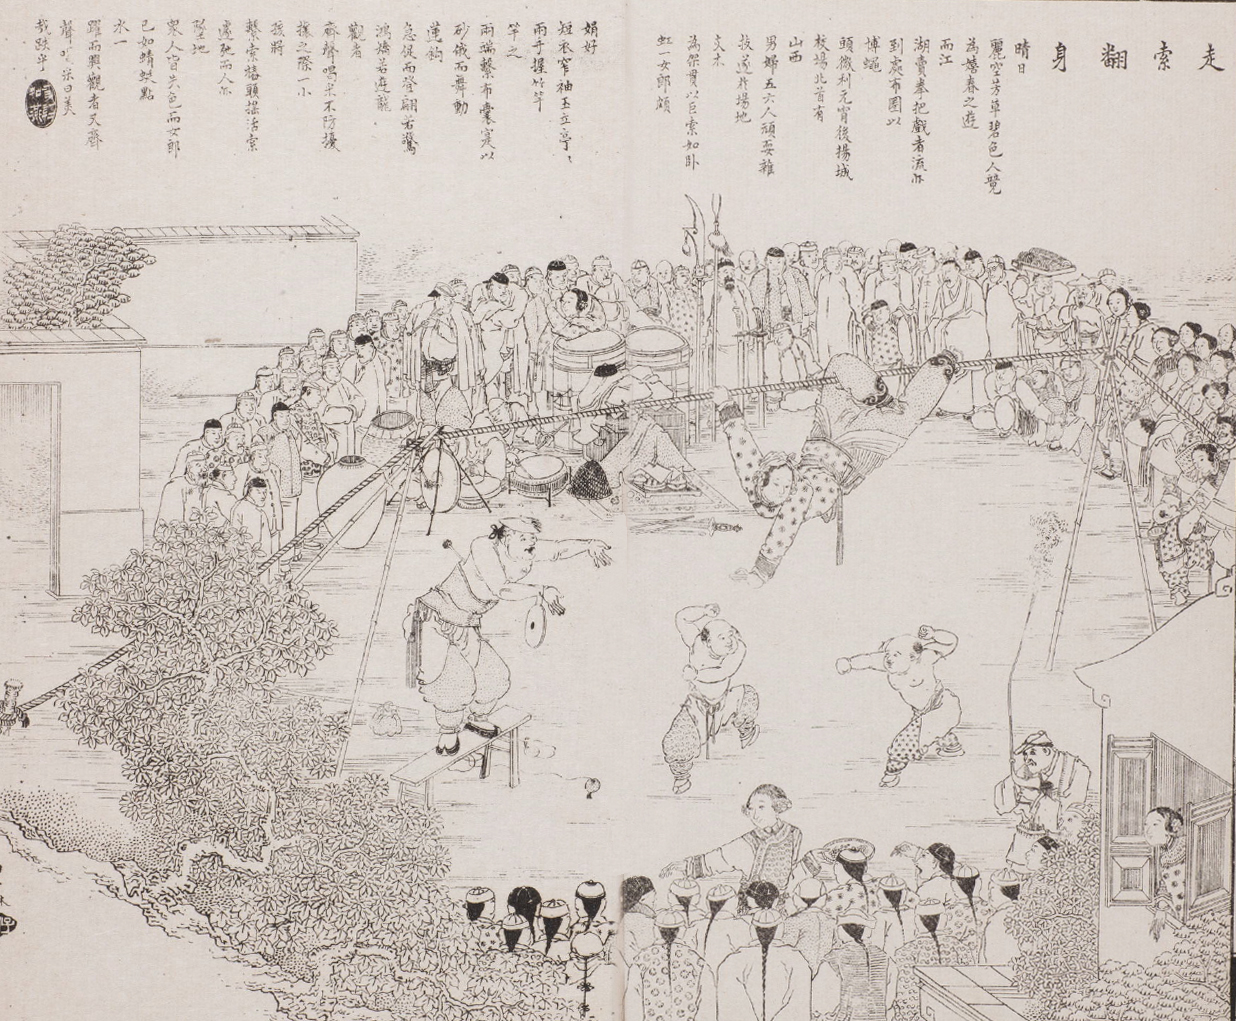 走索翻身
晴日
麗空芳草碧色人覽
為嬉春之遊
而江
湖賣拳把戲者流亦
到處布圍以
博蠅
頭微利元宵後揚城
校場北首有
山西
男婦五六人頑耍雜
技逆於場地
支木
為架貫以巨索如臥
虹一女郎頗
娟好
短衣窄袖玉立亭亭
兩手握竹竿
竿之
兩端繫布囊實以
砂俄而舞動
蓮鉤
急促而登翩若驚
鴻矯若遊龍
觀者
齊聲喝采不防擾
攘之際一小
孩將
繫索樁頭搖活索
遽弛而人亦
墜地
眾人皆失色而女郎
已如蜻蜓點
水一
躍而興觀者又齊
聲喝采曰美
哉跌乎